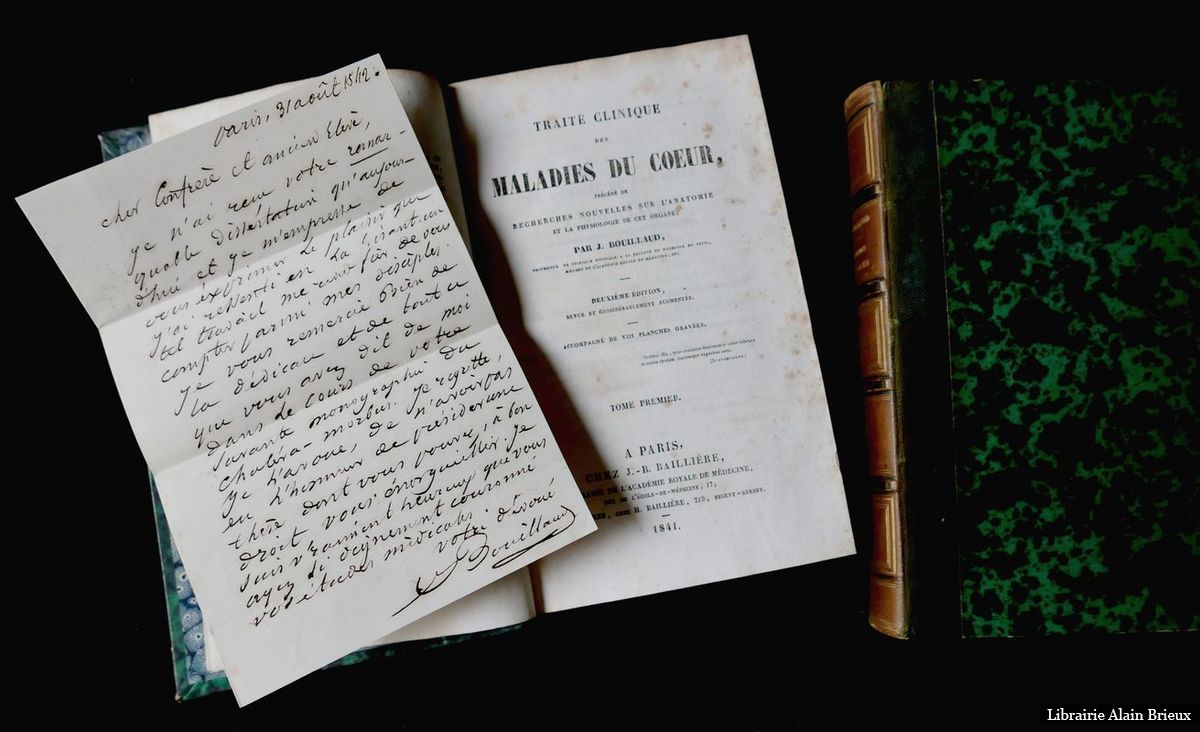 Paris, 31 août 1842.
Cher Confrère et ancien Elève,
Je n'ai reçu votre remar-
quable dissertation qu'aujour-
d'hui et je m'empresse de
vous exprimer le plaisir que
j'ai ressenti en la lisant. un
tel travail me rend fier de vous
compter parmi mes disciples.
Je vous remercie bien de
la dédicace et de tout ce
que vous avez dit de moi
dans le cours de votre
savante monographie du
choléra-morbus. Je regrette,
je l'avoue, de n'avoir pas
eu l'honneur de présider une
thèse dont vous pouvez, à bon
droit vous énorgueillir. Je
suis vraiment heureux que vous
ayez si dignement couronné
vos études médicales.
votre dévoué
Bouillaud
TRAITÉ CLINIQUE
DES
MALADIES DU COEUR,
PRÉCÉDÉ DE
RECHERCHES NOUVELLES SUR L'ANATOMIE
ET LA PHYSIOLOGIE DE CET ORGANE;
PAR J. BOUILLAUD,
PROFESSEUR DE CLINIQUE MÉDICALE A LA FACULTÉ DE MÉDECINE DE PARIS,
MEMBRE DE L'ACADÉMIE ROYALE DE MÉDECINE, ETC.
DEUXIÈME ÉDITION,
REVUE ET CONSIDÉRABLEMENT AUGMENTÉE.
ACCOMPAGNÉ DE VIII PLANCHES GRAVÉES.
TOME PREMIER.
A PARIS,
CHEZ J.-B. BAILLIÈRE,
DE L'ACADÉMIE ROYALE DE MÉDECINE,
RUE DE L'ÉCOLE-DE-MÉDECINE, 17;
CHEZ H. BAILLIÈRE, 219, REGENT-STREET.
1841.
Librairie Alain Brieux